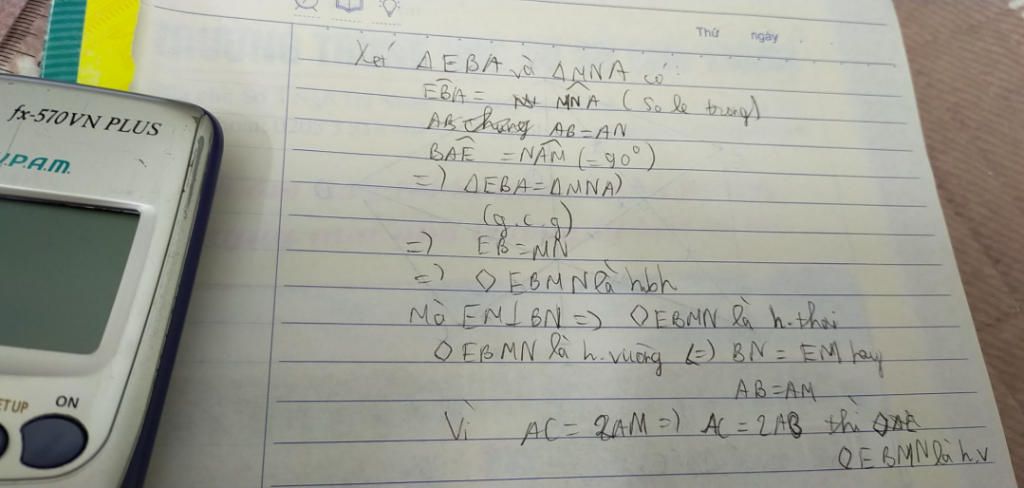 Thứ ngày
fx-570VN PLUS
V.P.A.M.
ETUP ON
Xét ΔEBA và ΔMNA có:
EBA = MNA (so le trong)
AB chung AB = AN
BAE = NAM (= 90°)
=) ΔEBA = ΔMNA)
(g.c.g)
=) EB = MN
=) ◇ EBMN là hbh
Mà EM ⊥ BN =) ◇ EBMN là h.thoi
◇ EBMN là h.vuông (=) BN = EM hay
AB = AM
Vì AC = 2AM =) AC = 2AB thì
◇ EBMN là h.v